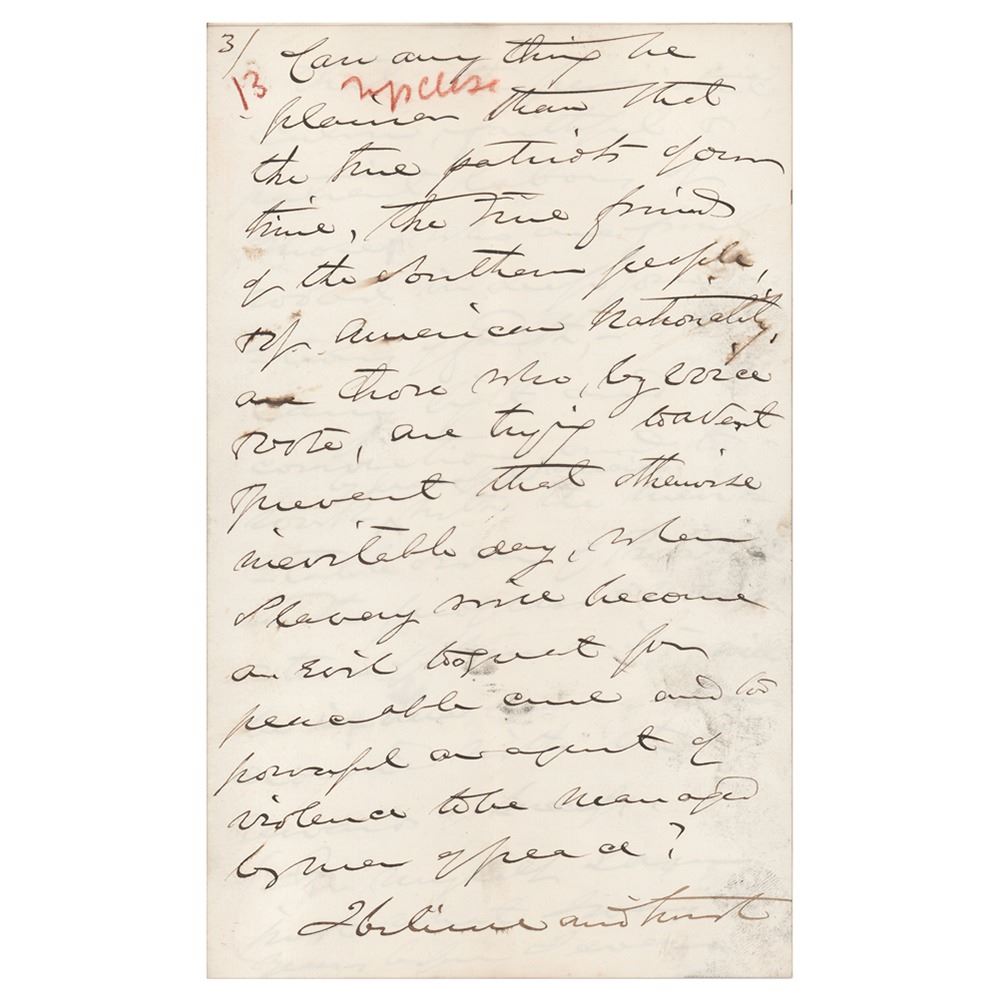 3/
13
Can any thing be
plainer than that
the true patriots of our
time, the true friends
of the Southern people,
& of American Nationality,
are those who, by voice
& vote, are trying to avert
& prevent that otherwise
inevitable day, when
Slavery will become
an evil too great for
peaceable cure and too
powerful an agent of
violence to be managed
by men of peace?
I believe and trust